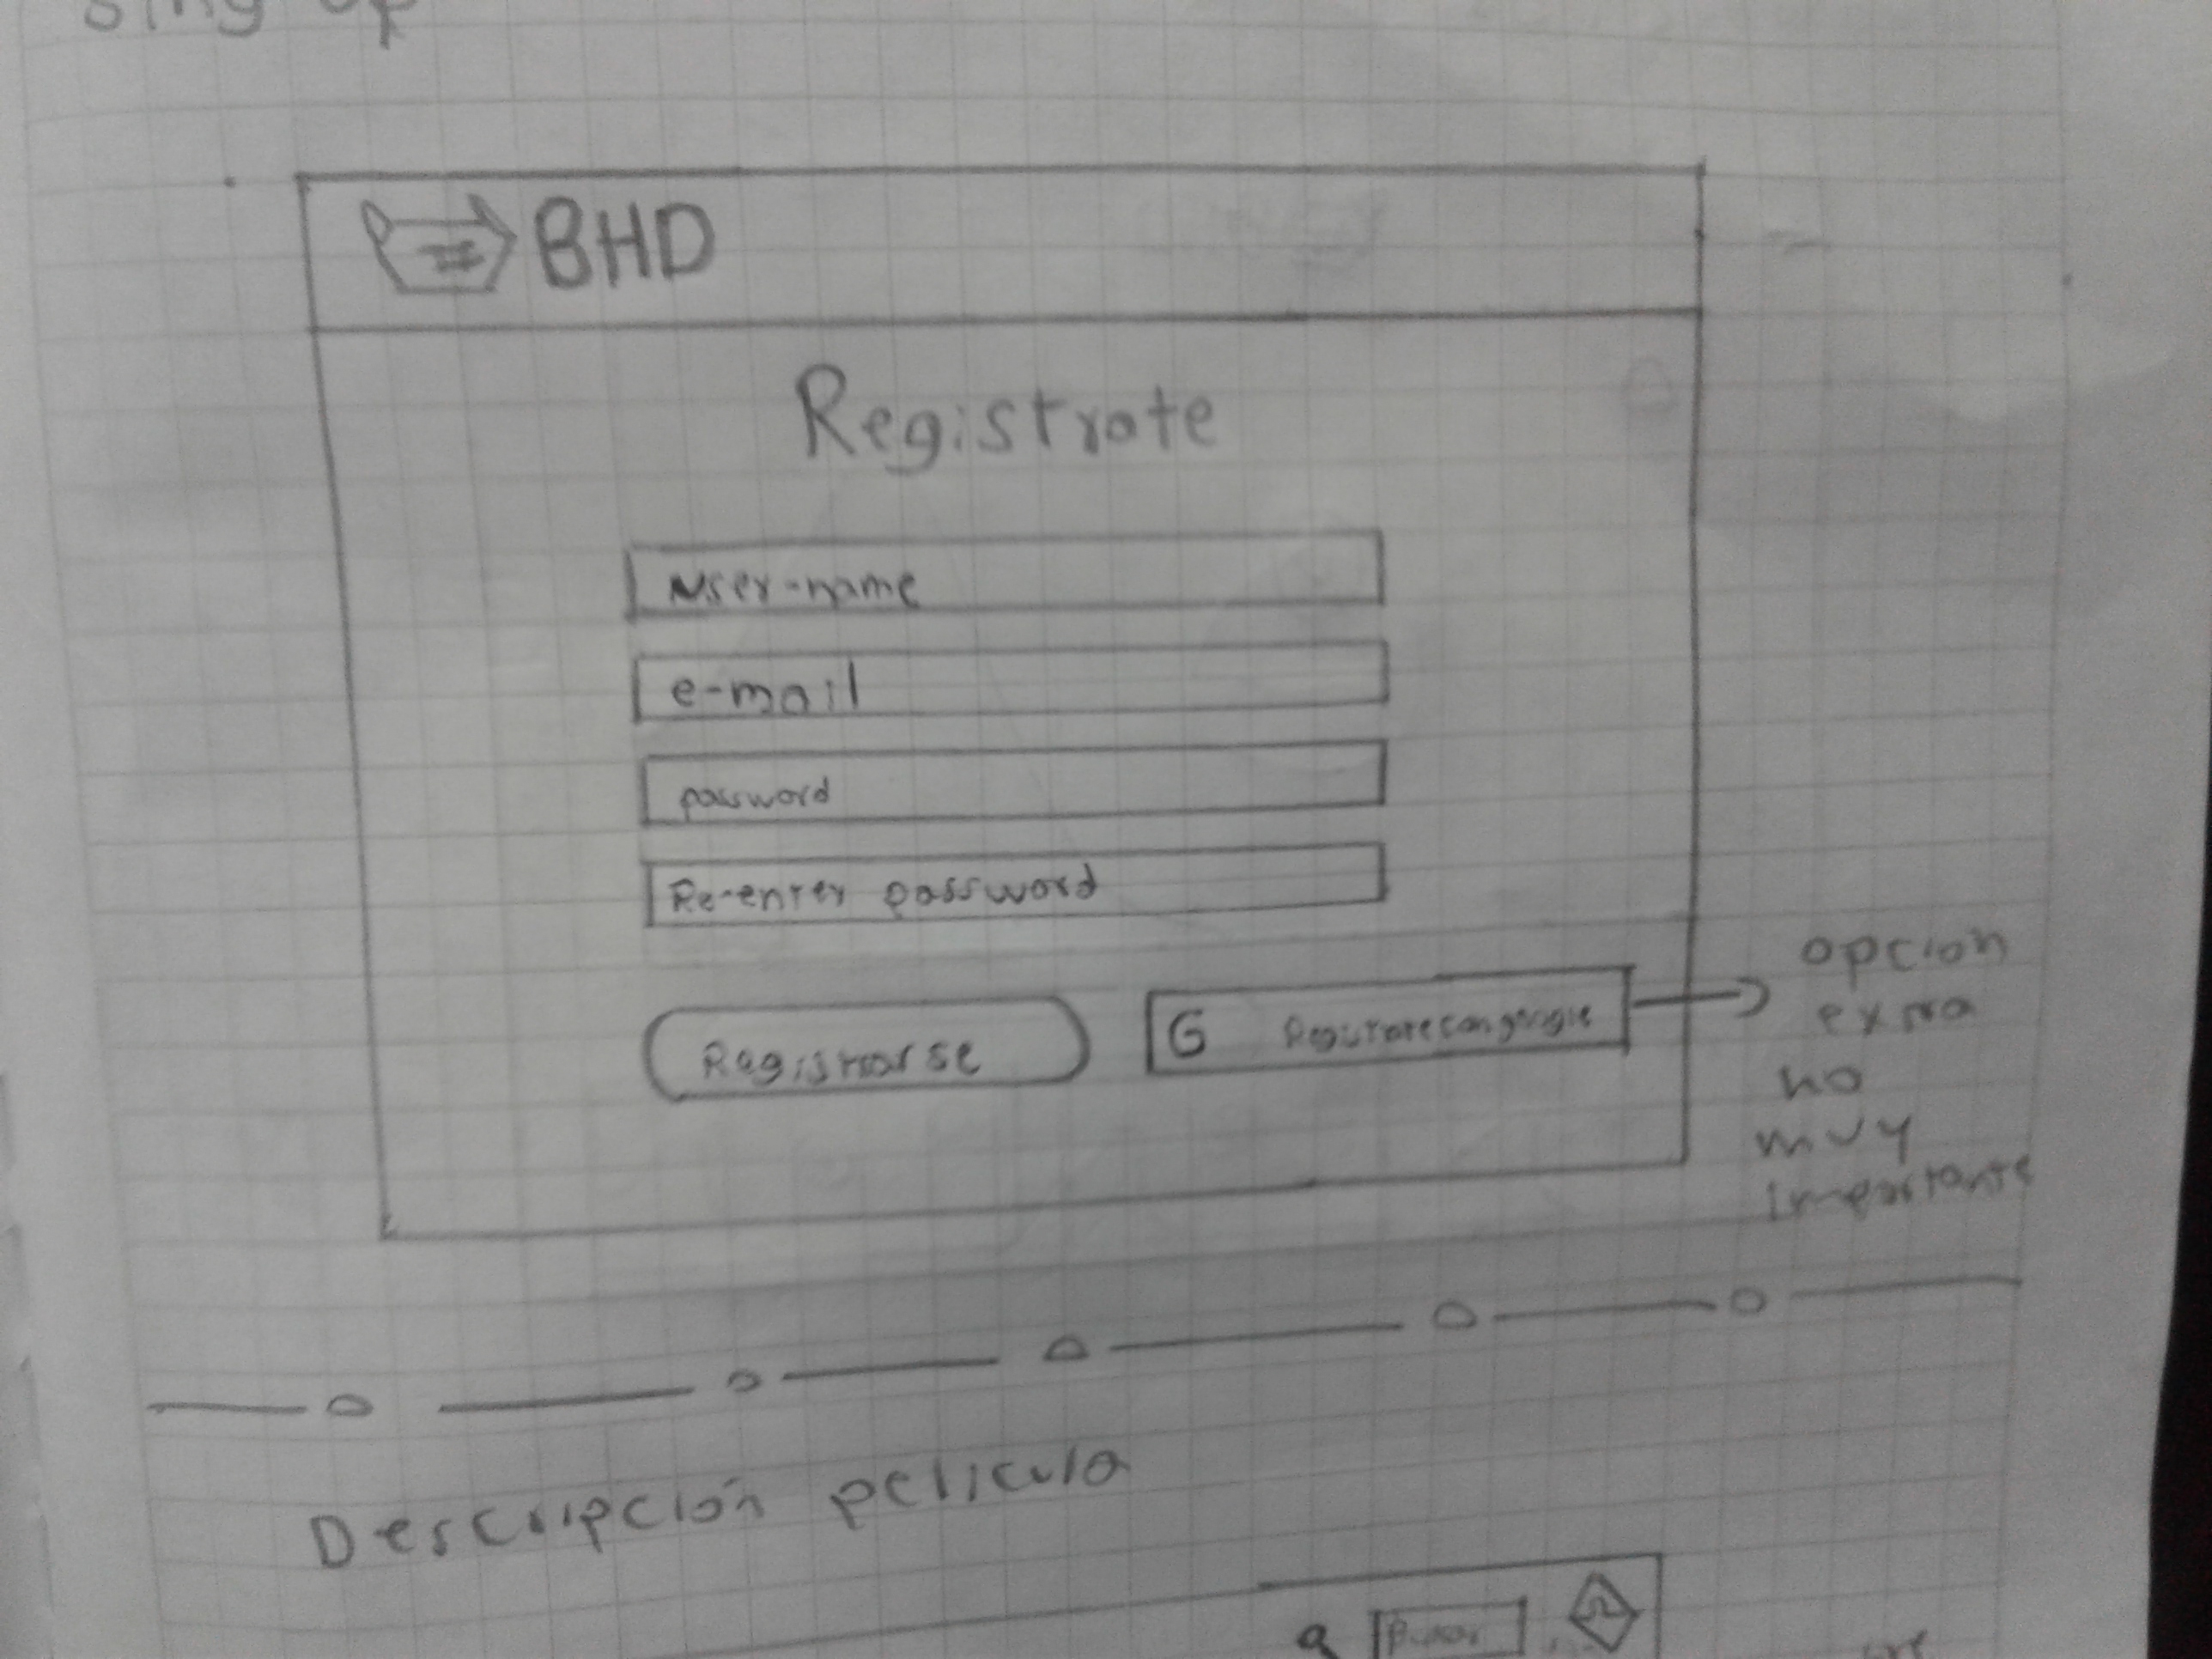 sing up
BHD
Registrate
user-name
e-mail
password
Re-enter password
Registrarse
G Registrate con google
opcion
extra
no
muy
importante
Descripción pelicula
Buscar